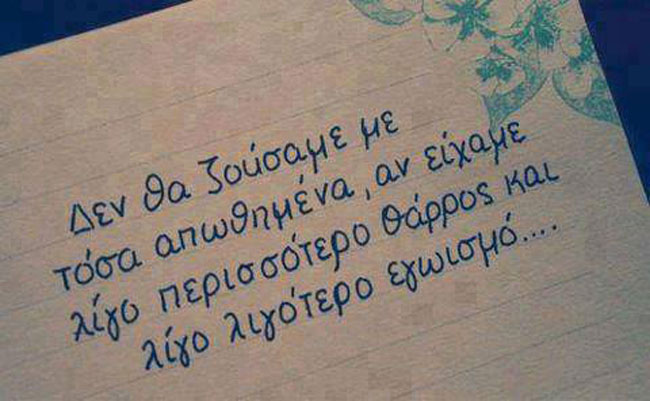 Δεν θα ζούσαμε με
τόσα απωθημένα, αν είχαμε
λίγο περισσότερο θάρρος και
λίγο λιγότερο εγωισμό....